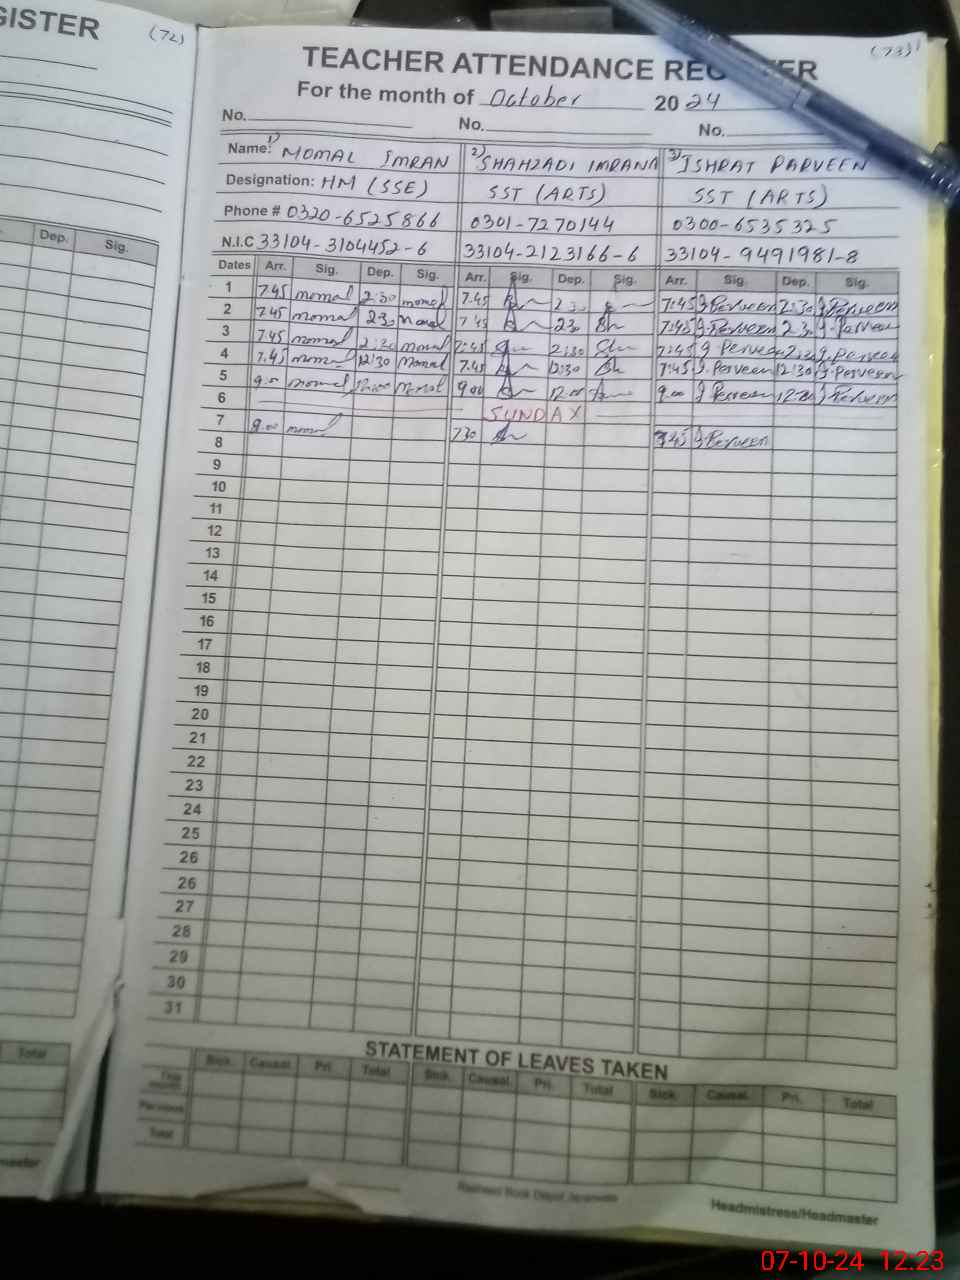 GISTER
(72)
(73)
TEACHER ATTENDANCE REG TER
For the month of October 2024
No. No. No.
Name: 1) MOMAL IMRAN 2) SHAHZADI IMRANA 3) ISHRAT PARVEEN
Designation: HM (SSE) SST (ARTS) SST (ARTS)
Phone # 0320-6525866 0301-7270144 0300-6535325
N.I.C 33104-3104452-6 33104-2123166-6 33104-9491981-8
Dep. Sig.
Dates Arr. Sig. Dep. Sig. Arr. Sig. Dep. Sig. Arr. Sig. Dep. Sig.
1 7.45 momal 2:30 momal 7.45 2 3 7:45 J.Perveen 2:30 J.Perveen
2 7.45 momal 2.30 momal 7 45 2.30 Sh 7:45 J.Perveen 2.3 J.Perveen
3 7.45 momal 2:30 momal 7:45 2:30 7:45 J Perveen J.Perveen
4 7.45 momal 12:30 momal 7.45 12:30 Sh 7:45 J.Perveen 12:30 J.Perveen
5 9.00 momal 12:00 momal 9.00 12.00 9.00 J Perveen 12.00 J Perveen
6 SUNDAY
7 9.00 momal 7.30 7.45 J Perveen
8
9
10
11
12
13
14
15
16
17
18
19
20
21
22
23
24
25
26
26
27
28
29
30
31
STATEMENT OF LEAVES TAKEN
Total
Sick. Causal. Pri. Total Sick. Causal. Pri. Total Sick. Causal. Pri. Total
This month
Previous
Total
master
Headmistress/Headmaster
07-10-24 12:23